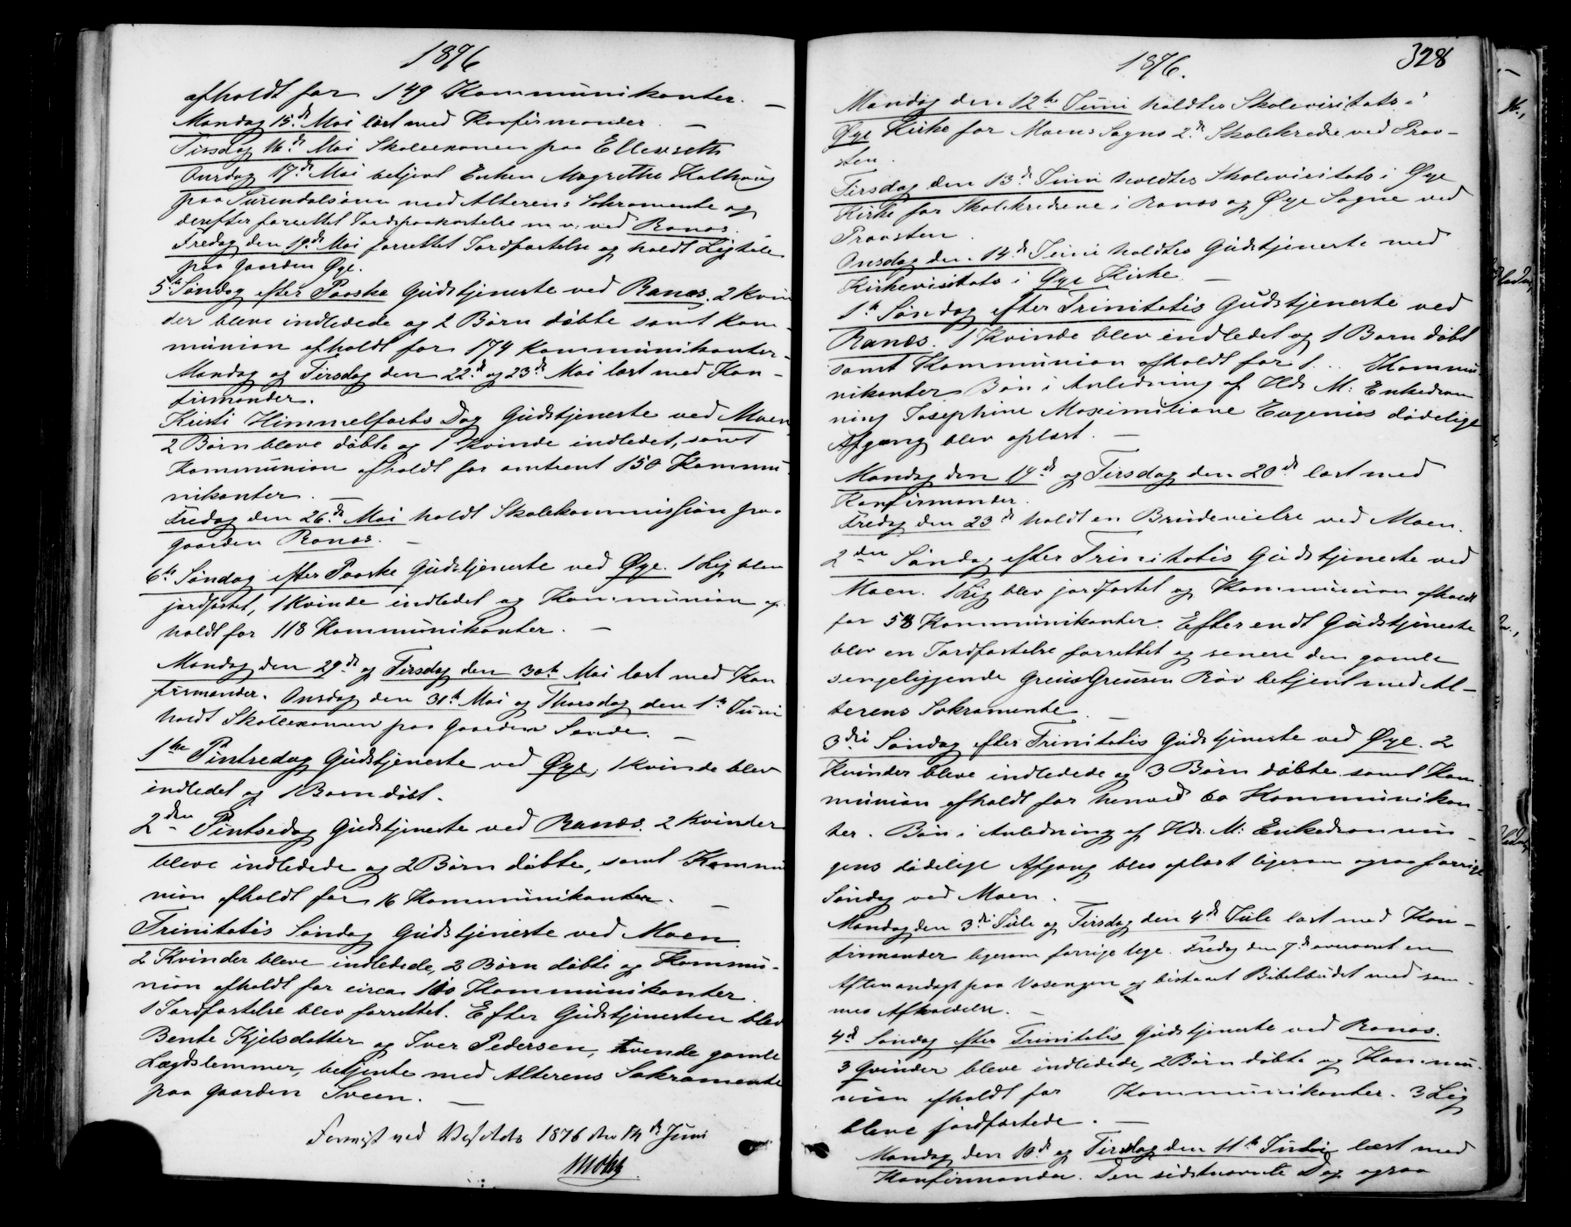 1876
afholdt for 149 Kommunikanter. —
Mandag 15de Mai læst med Konfirmander. —
Tirsdag 16de Mai Skoleexamen paa Ellevseth
Onsdag 17de Mai betjent Enken Magrethe Kalhaug
paa Surendalsøra med Alterens Sakramente og
derefter forrettet Jordpaakastelse m. v. ved Ranæs.
Fredag den 19de Mai forrettet Jordfæstelse og holdt Ligtale
paa Gaarden Øye.
5te Søndag efter Paaske Gudstjeneste ved Ranæs. 2 Kvin
der bleve indledede og 2 Børn døbte samt Kom-
munion afholdt for 174 Kommunikanter.
Mandag og Tirsdag den 22de og 23de Mai læst med Kon-
firmander.
Kristi Himmelfarts Dag Gudstjeneste ved Moen
2 Børn bleve døbte og 1 Kvinde indledet, samt
Kommunion afholdt for omtrent 150 Kommu-
nikanter. —
Fredag den 26de Mai holdt Skolekommission paa
Gaarden Ranæs. —
6te Søndag efter Paaske Gudstjeneste ved Øye. 1 Lig blev
jordfæstet, 1 Kvinde indledet og Kommunion af-
holdt for 118 Kommunikanter. —
Mandag den 29de og Tirsdag den 30te Mai læst med Kon
firmander. Onsdag den 31te Mai og Thorsdag den 1te Juni
holdt Skoleexamen paa Gaarden Sande. —
1ste Pintsedag Gudstjeneste ved Øye, 1 Kvinde blev
indledet og 1 Barn døbt.
2den Pintsedag Gudstjeneste ved Ranæs. 2 Kvinder
bleve indledede og 2 Børn døbte, samt Kommu
nion afholdt for 16 Kommunikanter. —
Trinitatis Søndag Gudstjeneste ved Moen
2 Kvinder bleve indledede, 2 Børn døbte og Kommu-
nion afholdt for circa Kommunikanter.
1 Jordfæstelse blev forrettet. Efter Gudstjenesten blev
Bente Kjelsdatter og Iver Pedersen, tvende gamle
Lægdslemmer, betjente med Alterens Sakramente
paa Gaarden Sveen. —
ved Visitats 1876 den 14de Juni
1876.
328
Mandag den 12te Juni holdtes Skolevisitats i
Øye Kirke for Moens Sogns 2de Skolekredse ved Prov-
sten.
Tirsdag den 13de Juni holdtes Skolevisitats i Øye
Kirke for Skolekredsene i Ranæs og Øye Sogne ved
Provsten.
Onsdag den 14de Juni holdtes Gudstjeneste med
Kirkevisitats i Øye Kirke —
1te Søndag efter Trinitatis Gudstjeneste ved
Ranæs. 1 Kvinde blev indledet og 1 Barn døbt
samt Kommunion afholdt for Kommu
nikanter Bøn i Anledning af Hds. M: Enkedron
ning Josephine Maximiliane Eugenias dødelige
Afgang blev oplæst. —
Mandag den 19de og Tirsdag den 20de læst med
Konfirmander.
Fredag den 23de holdt en Brudevielse ved Moen.
2den Søndag efter Trinitatis Gudstjeneste ved
Moen. 1 Lig blev jordfæstet og Kommunion afholdt
for 58 Kommunikanter. Efter endt Gudstjeneste
blev en Jordfæstelse forrettet og senere den gamle
sengeliggende Røv betjent med Al-
terens Sakramente —
3die Søndag efter Trinitatis Gudstjeneste ved Øye. 2
Kvinder bleve indledede og 3 Børn døbte samt Kom
munion afholdt for henved 60 Kommunikan-
ter. Bøn i Anledning af Hds. M: Enkedronnin-
gens dødelige Afgang blev oplæst ligesom ogsaa forrige
Søndag ved Moen.
Mandag den 3die Juli og Tirsdag den 4de Juli læst med Kon-
firmander ligesom forrige Uge. Fredag den 7de en
Aftenandagt paa Vaasengen og Bibelbudet med sam-
mes Afholdelse. —
4de Søndag efter Trinitatis Gudstjeneste ved Ranæs.
3 Qvinder bleve indledede, 2 Børn døbte og Kommu-
nion afholdt for Kommunikanter. 3 Lig
bleve jordfæstede. —
Mandag den 10de og Tirsdag den 11te Juli læst med
Konfirmander. Den sidstnævnte Dag ogsaa